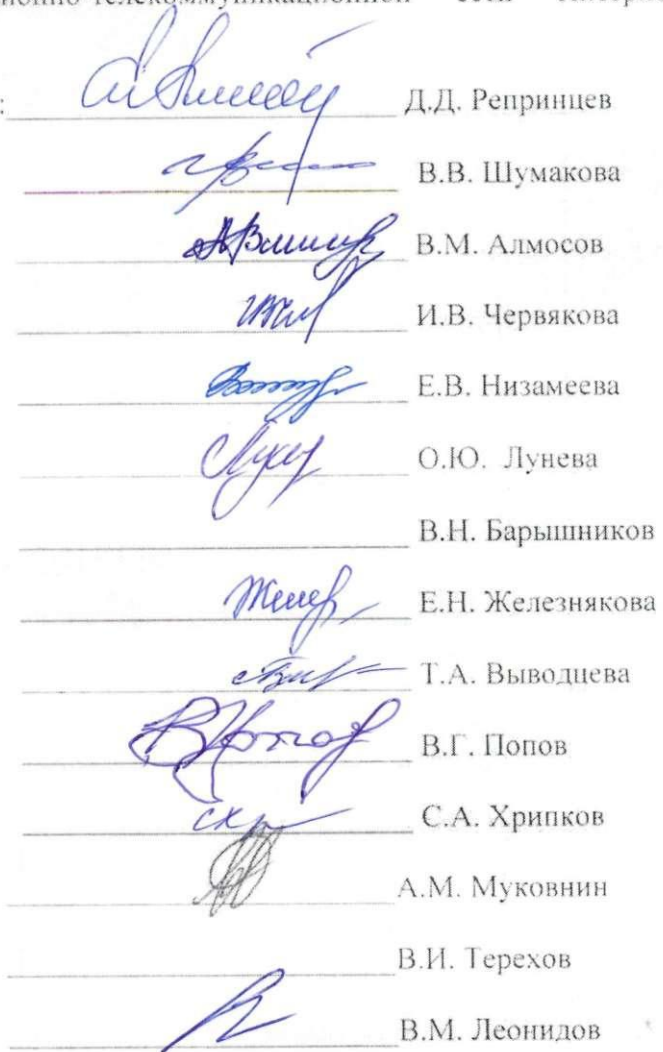 : Д.Д. Репринцев
В.В. Шумакова
В.М. Алмосов
И.В. Червякова
Е.В. Низамеева
О.Ю. Лунева
В.Н. Барышников
Е.Н. Железнякова
Т.А. Выводцева
В.Г. Попов
С.А. Хрипков
А.М. Муковнин
В.И. Терехов
В.М. Леонидов